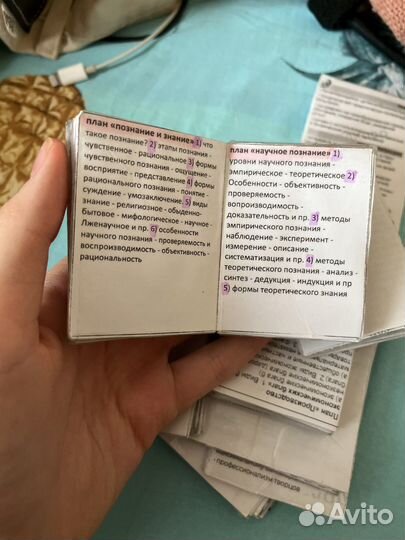 план «познание и знание» 1) что
такое познание? 2) этапы познания -
чувственное - рациональное 3) формы
чувственного познания - ощущение -
восприятие - представление 4) формы
рационального познания - понятие -
суждение - умозаключение 5) виды
знание - религиозное - обыденно-
бытовое - мифологическое - научное -
Лженаучное и пр. 6) особенности
научного познания - проверяемость и
воспроизводимость - объективность -
рациональность
план «научное познание» 1)
уровни научного познания -
эмпирическое - теоретическое 2)
Особенности - объективность -
проверяемость -
вопроизводимость -
доказательность и пр. 3) методы
эмпирического познания -
наблюдение - эксперимент -
измерение - описание -
систематизация и пр. 4) методы
теоретического познания - анализ -
синтез - дедукция - индукция и пр
5) формы теоретического знания
План «Производство
экономических благ» 1.
- профессионализм творцов
Avito